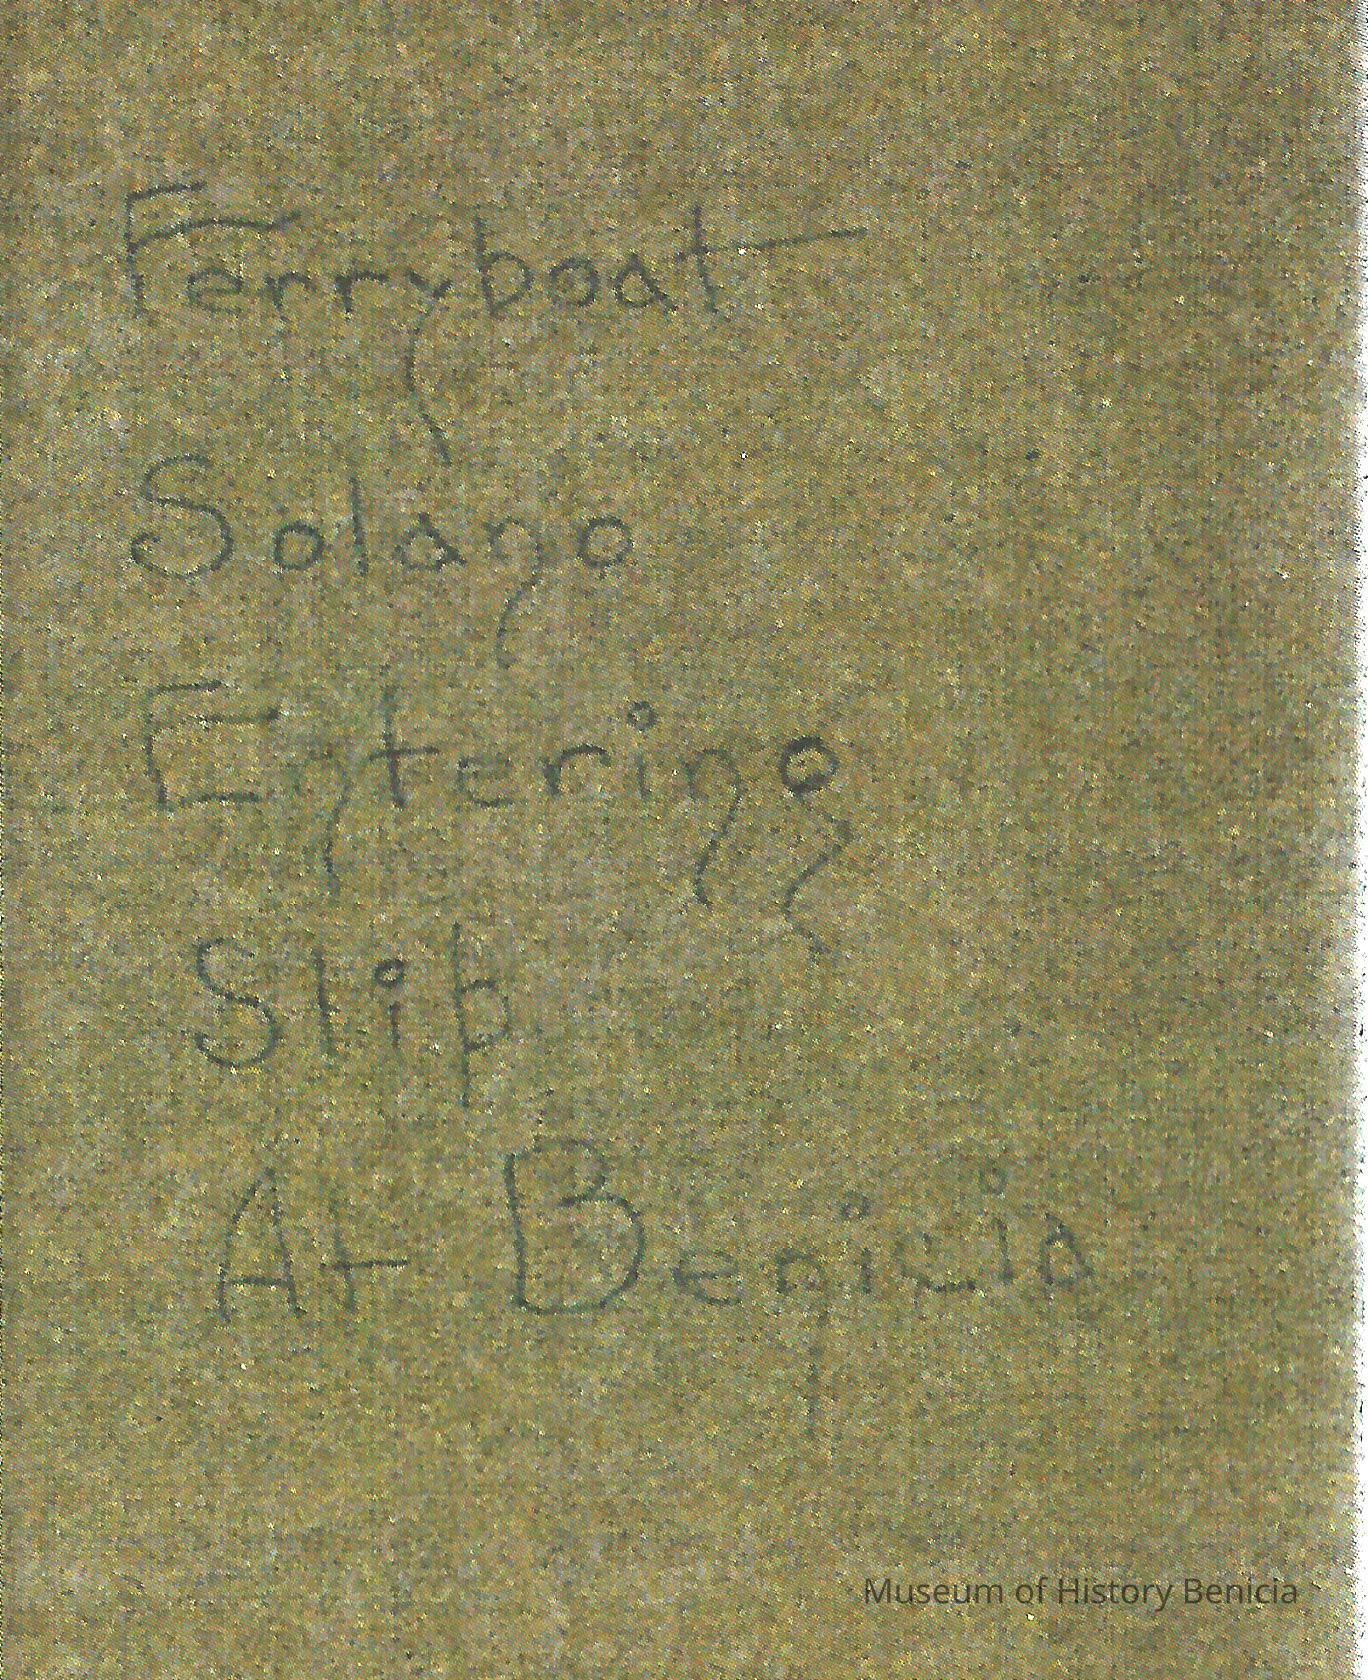 Ferryboat
Solano
Entering
Slip
At Benicia
Museum of History Benicia